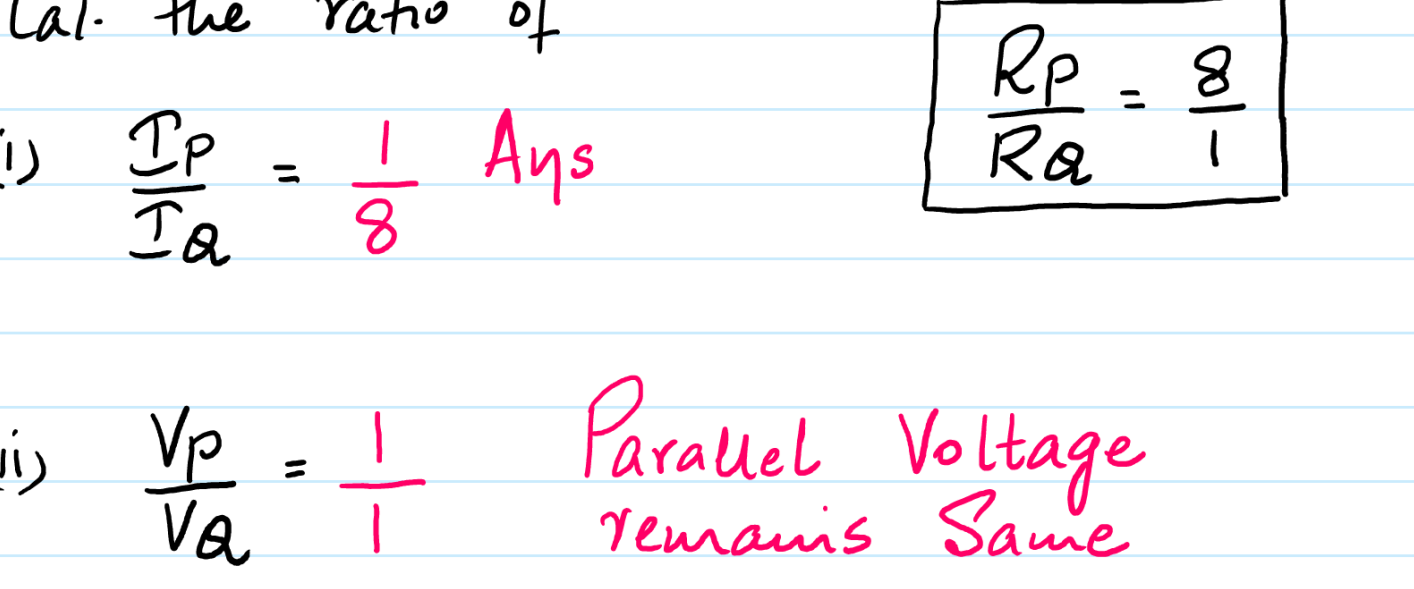 Cal. the ratio of
Rp/RQ = 8/1
i) Ip/IQ = 1/8 Ans
ii) Vp/VQ = 1/1 Parallel Voltage
remains Same